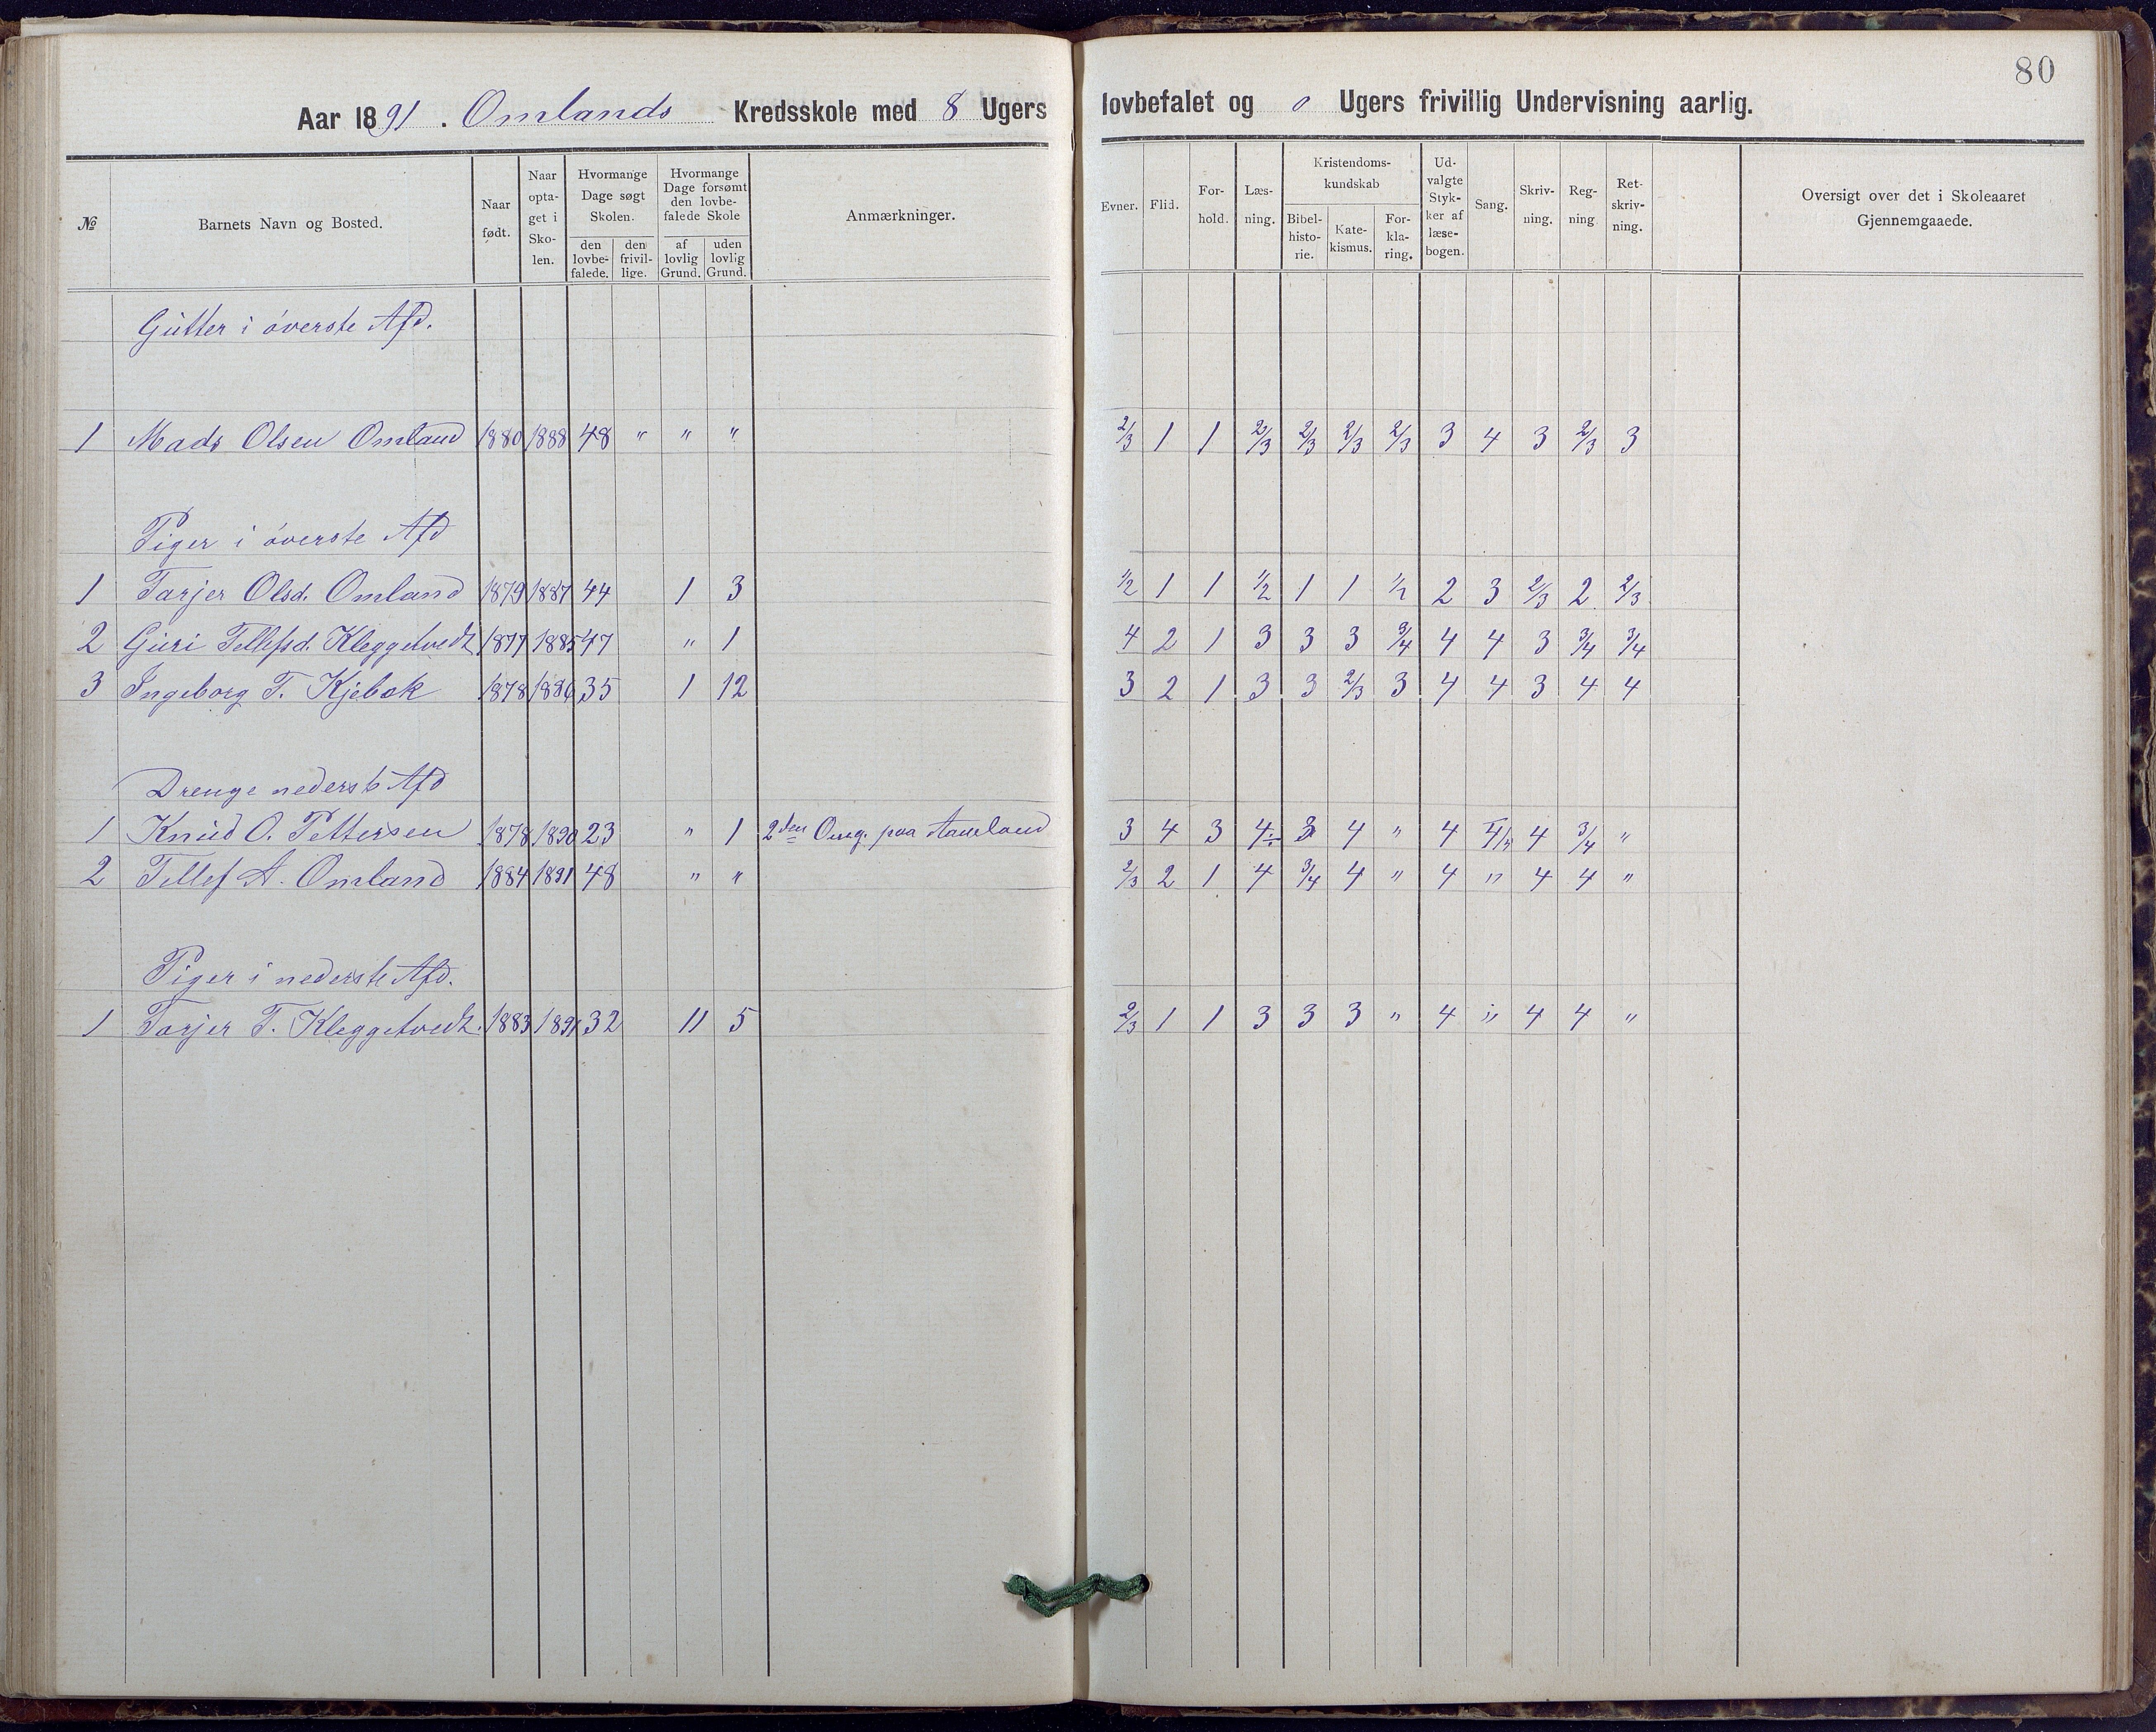 80
Aar 1891. Omlands Kredsskole med 8 Ugers lovbefalet og 0 Ugers frivillig Undervisning aarlig.
№ | Barnets Navn og Bosted. | Naar født. | Naar optaget i Skolen. | Hvormange Dage søgt Skolen. den lovbefalede. | den frivillige. | Hvormange Dage forsømt den lovbefalede Skole af lovlig Grund. | uden lovlig Grund. | Anmærkninger. | Evner. | Flid. | Forhold. | Læsning. | Kristendomskundskab Bibelhistorie. | Katekismus. | Forklaring. | Udvalgte Stykker af læsebogen. | Sang. | Skrivning. | Regning | Retskrivning. | Oversigt over det i Skoleaaret Gjennemgaaede.
Gutter i øverste Afd.
1 Mads Olsen Omland 1880 1888 48 " " " 2/3 1 1 2/3 2/3 2/3 2/3 3 4 3 2/3 3
Piger i øverste Afd
1 Tarjer Olsd. Omland 1879 1887 44 1 3 1/2 1 1 1/2 1 1 1/2 2 3 2/3 2 2/3
2 Guri Tellefsd. Kleggetvedt 1877 1885 47 " 1 4 2 1 3 3 3 3/4 4 4 3 3/4 3/4
3 Ingeborg T. Kjebok 1878 1886 35 1 12 3 2 1 3 3 2/3 3 4 4 3 4 4
Drenge nederste Afd
1 Knud O. Pettersen 1878 1890 23 " 1 2den Omg. paa 3 4 3 4÷ 3 4 " 4 4 3/4 "
2 Tellef A. Omland 1884 1891 48 " " 2/3 2 1 4 3/4 4 " 4 " 4 4 "
Piger i nederste Afd.
1 Tarjer T. Kleggetvedt. 1883 1891 32 11 5 2/3 1 1 3 3 3 " 4 " 4 4 "